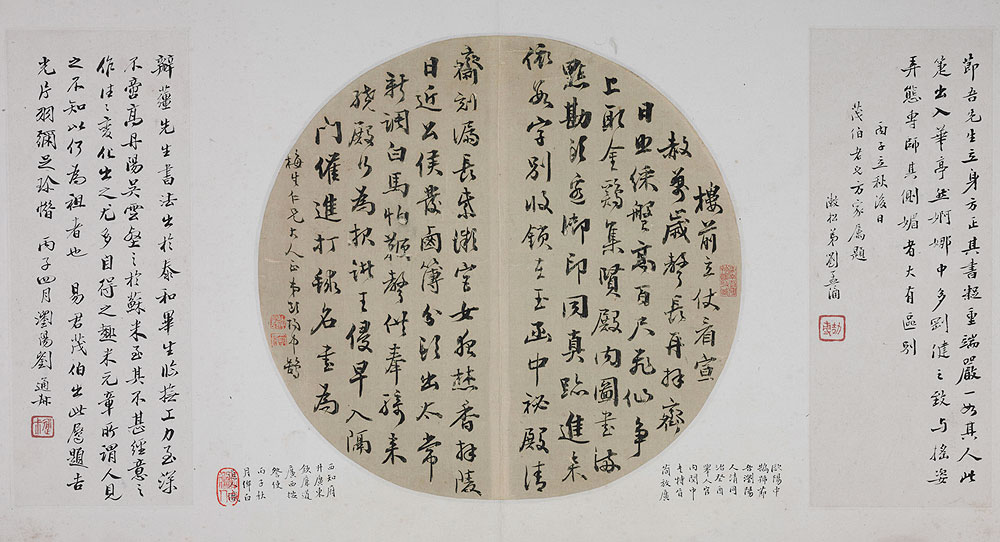 節吾先生立身方正其書凝重端嚴一如其人此
箑出入華亭然婀娜中多剛健之致与搔姿
弄態專師其側媚者大有區別
茂伯老兄方家属題
丙子立秋後日
澂松弟劉
樓前立仗看宣
赦萬歲聲長再拜齊
日照綵盤高百尺飛仙爭
上取金鷄集賢殿內圖書滿
點勘頭邊御印同真跡進來
依數字別收鎖在玉函中祕殿清
齋刻漏長紫微宮女夜焚香拜陵
日近公侯發鹵簿分頭出太常
新調白馬怕鞭聲供奉騎來
繞殿行為報諸王侵早入隔
門催進打毬名書為
梅生仁兄大人正弟歐陽中鵠
歐陽中
鵠號節
吾瀏陽
人清同
治癸酉
舉人官
內閣中
書特旨
簡放廣
西知府
升廣東
欽廉道
廣西
丙子秋
月
辯薑先生書法出於泰和畢生臨撫工力至深
不啻高丹陽吳雲壑之於蘇米至其不甚經意之
作往々變化出之尤多自得之趣米元章所謂人見
之不知以何為祖者也 易君茂伯出此属題吉
光片羽彌足珍惜 丙子四月瀏陽劉通叔